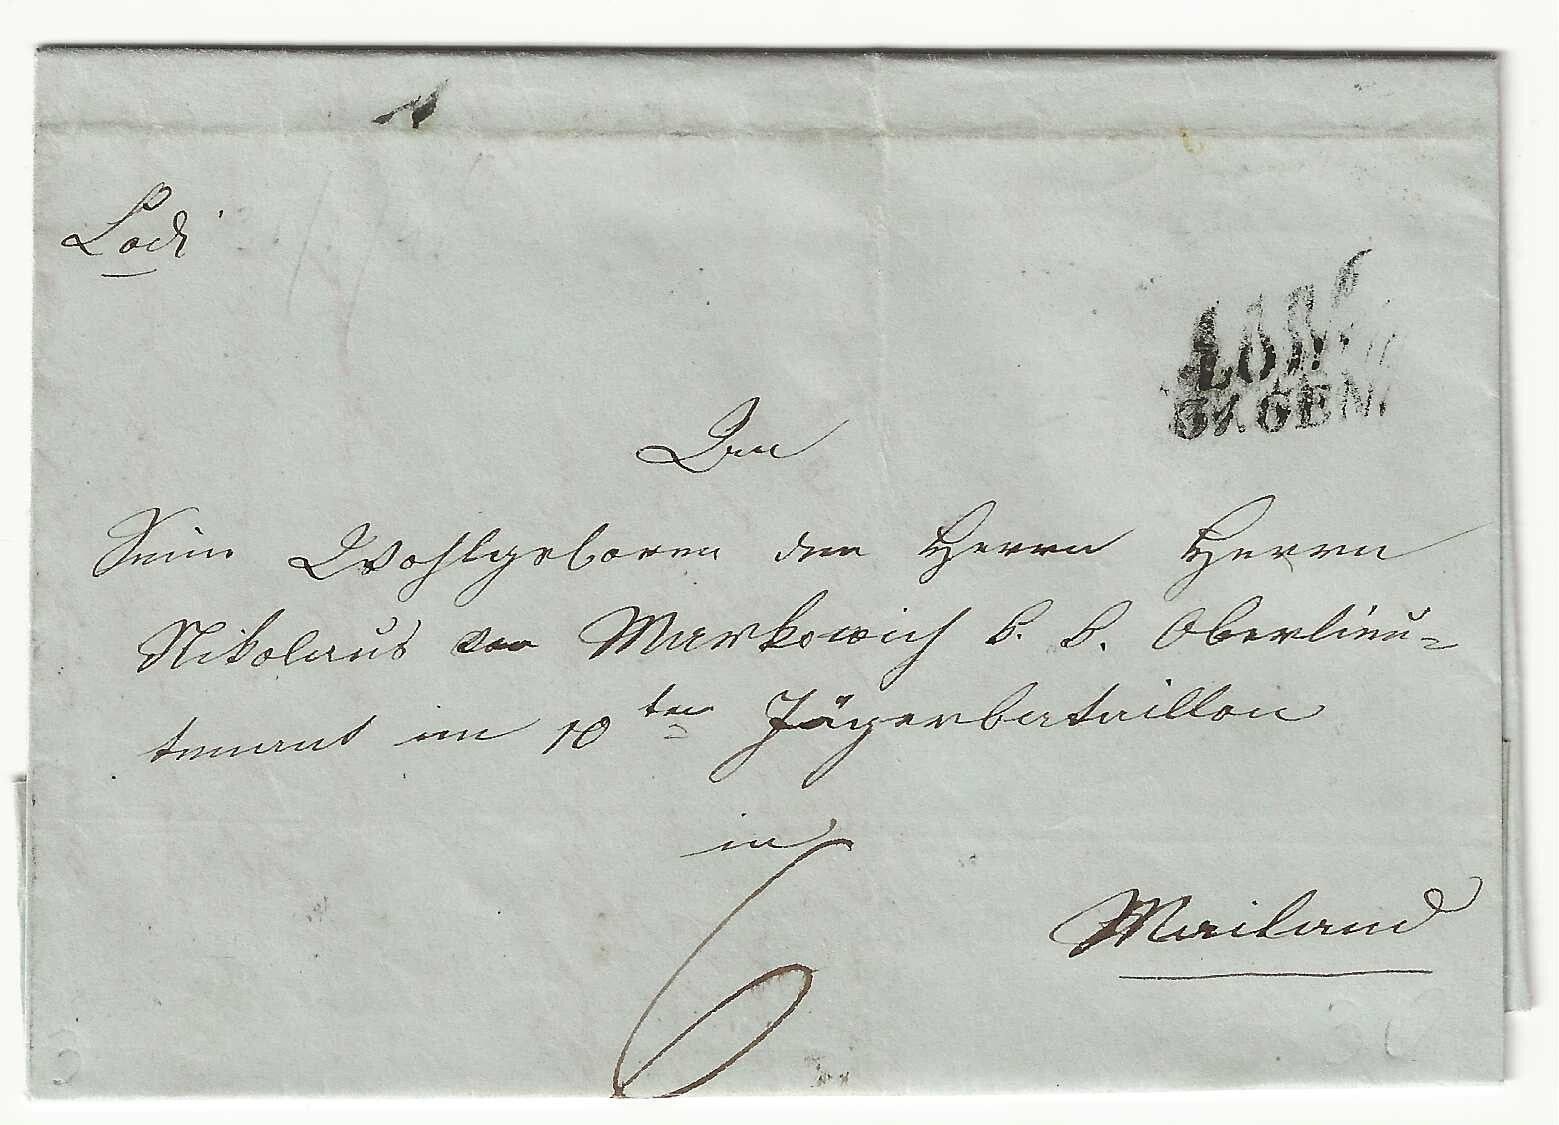 Lodi
LODI
6 GEN.
An
Seine Wohlgeboren den Herrn Herrn
Nikolaus von Markowich k. k. Oberlieu=
tenant im 10ten Jägerbataillon
in
6
Mailand